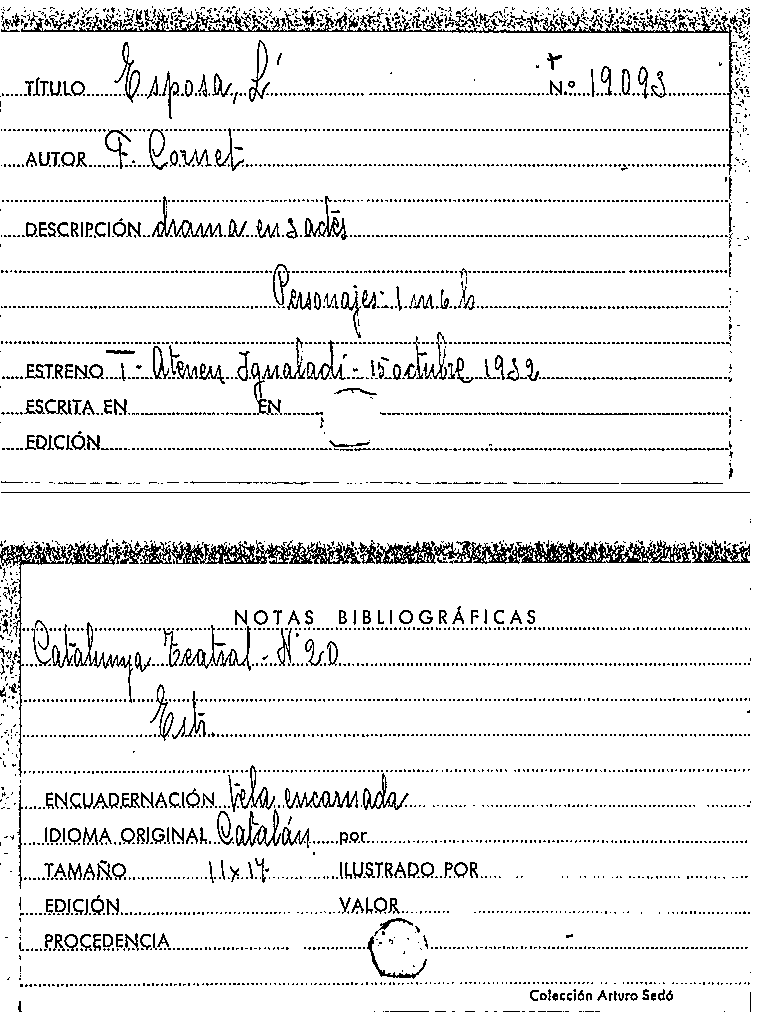 TÍTULO Esposa, L'
Nº 19093
AUTOR F. Cornet
DESCRIPCIÓN drama en 3 actes
Personajes - 1 m 6 h
ESTRENO T - Ateneu Igualadí - 15 octubre 1932
ESCRITA EN EN
EDICIÓN
NOTAS BIBLIOGRÁFICAS
Catalunya Teatral - Nº 20
Estr.
ENCUADERNACIÓN tela encarnada
IDIOMA ORIGINAL Catalán por
TAMAÑO 11x17 ILUSTRADO POR
EDICIÓN VALOR
PROCEDENCIA
Colección Arturo Sedó